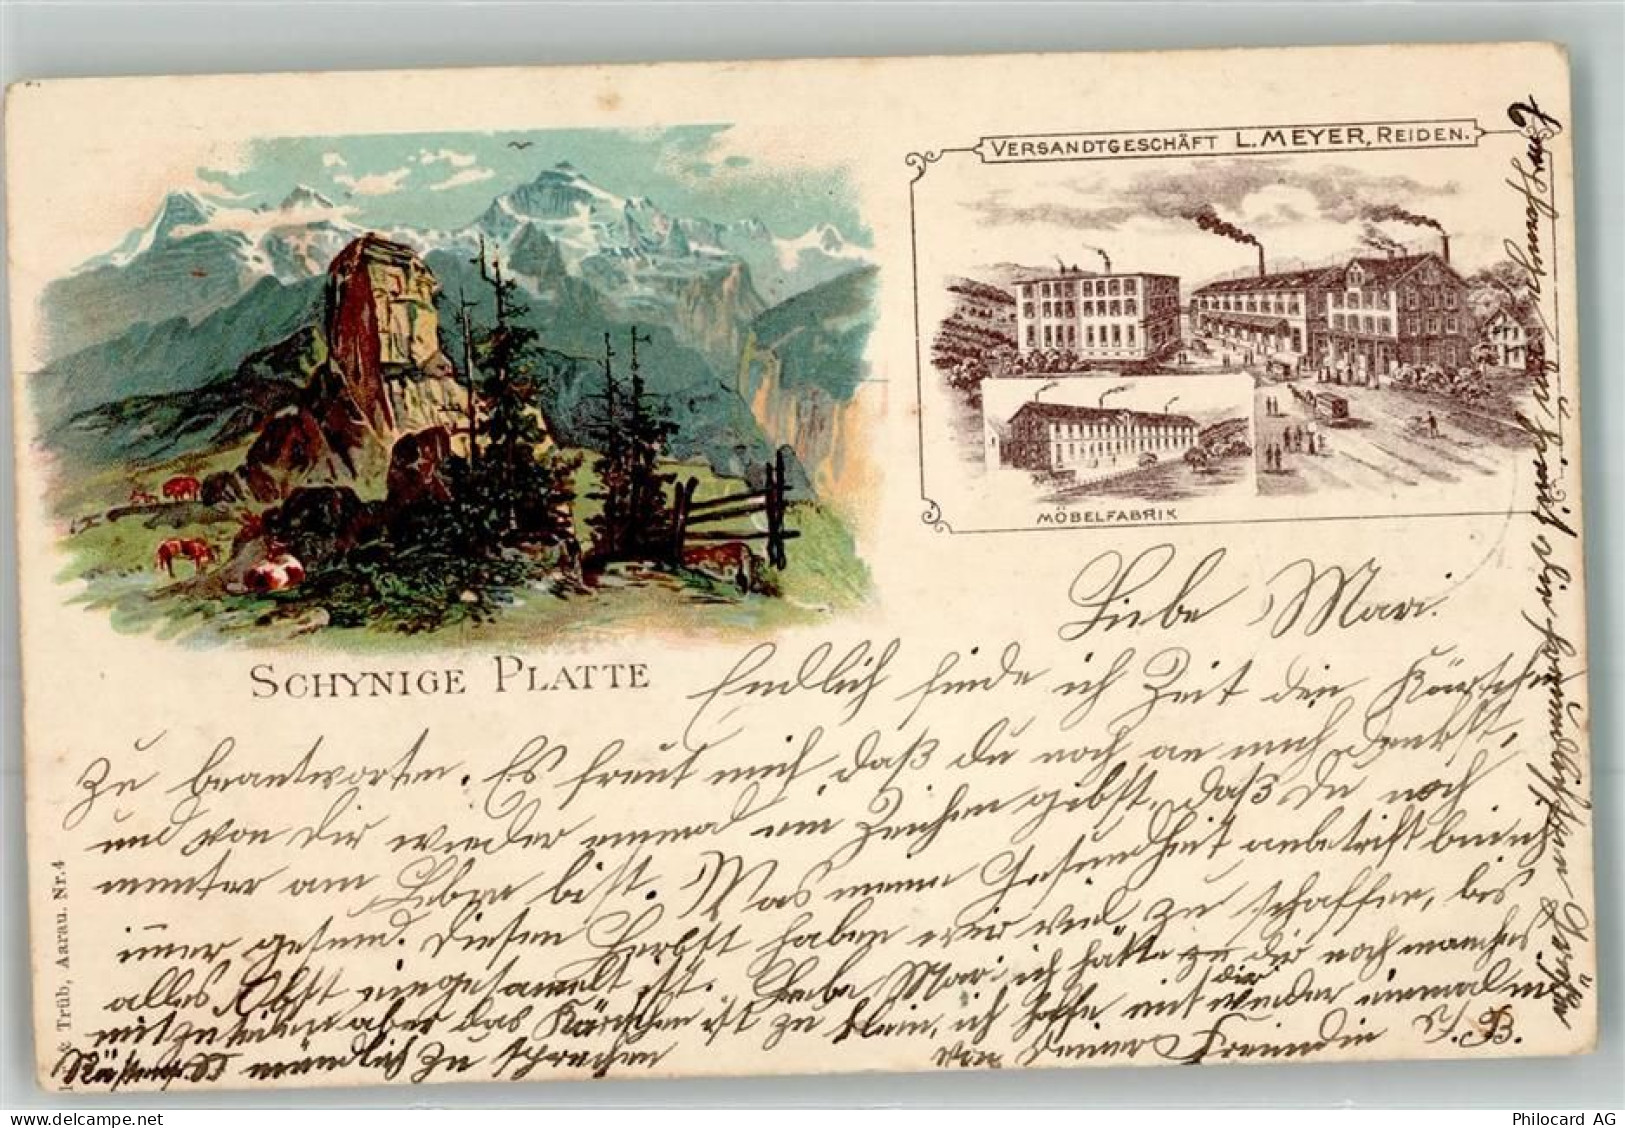 VERSANDTGESCHÄFT L. MEYER, REIDEN.
MÖBELFABRIK
SCHYNIGE PLATTE
Trüb, Aarau. Nr. 4
Liebe Mari.
Endlich finde ich Zeit dein Kärtchen
zu beantworten. Es freut mich daß du noch an mich denkst,
und von dir wieder einmal ein Zeichen gibst, daß du noch
munter am Leben bist. Was meine Gesundheit anbetrift bin ich
immer gesund. Diesen Herbst haben wir viel zu schaffen, bis
alles Obst eingesamelt ist. Liebe Mari ich hätte dir noch manches
mitzuteilen aber das Kärtchen ist zu klein, ich hoffe mit dir wieder einmal
mündlich zu sprechen
von deiner Freundin
B.
Philocard AG